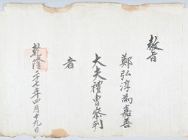 教旨
鄭弘淳爲嘉善
大夫禮曹參判
者
乾隆二十七年四月十九日